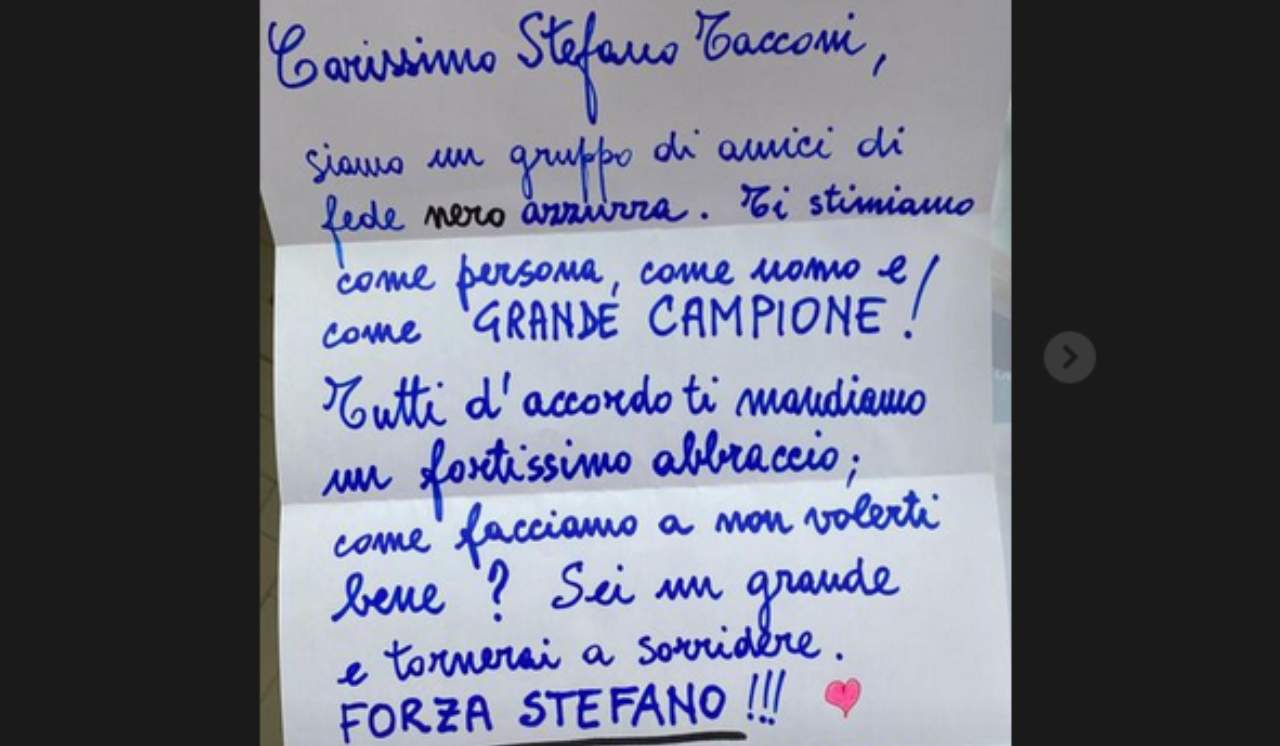 Carissimo Stefano Tacconi,
siamo un gruppo di amici di
fede nero azzurra. Ti stimiamo
come persona, come uomo e
come GRANDE CAMPIONE!
Tutti d'accordo ti mandiamo
un fortissimo abbraccio;
come facciamo a non volerti
bene? Sei un grande
e tornerai a sorridere.
FORZA STEFANO!!!